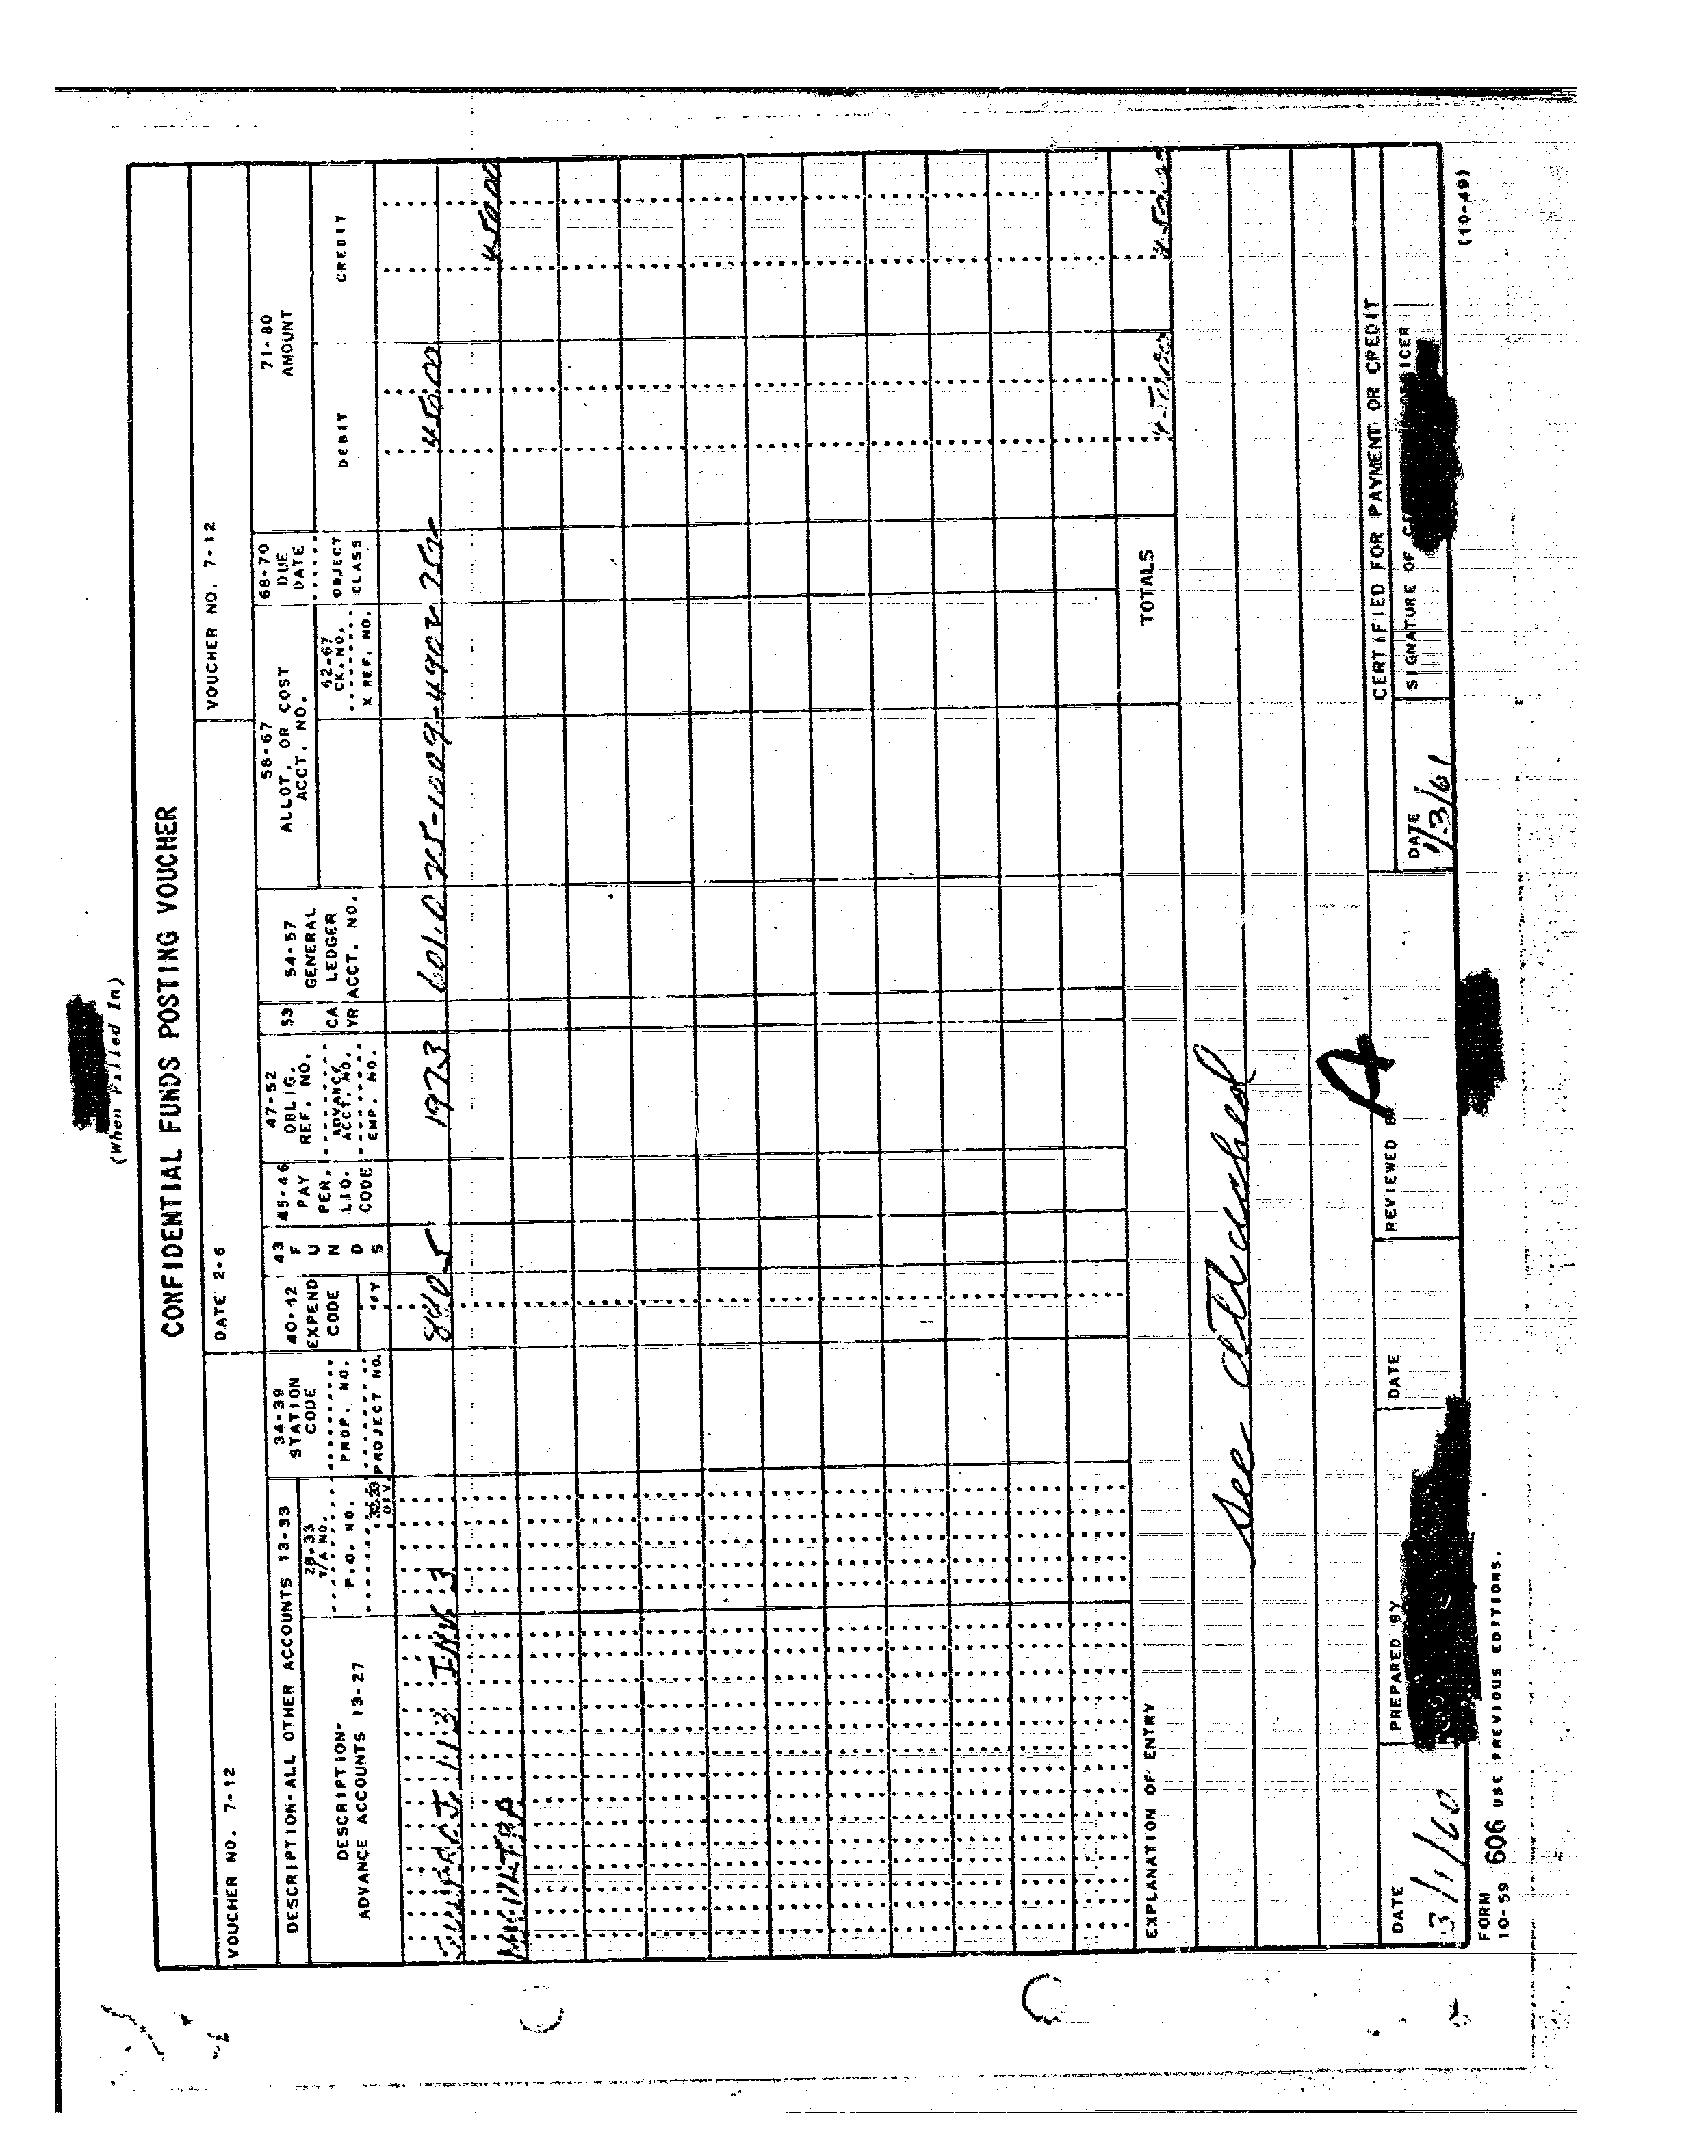 (When Filled In)
CONFIDENTIAL FUNDS POSTING VOUCHER
VOUCHER NO. 7-12
DATE 2-6
VOUCHER NO. 7-12
DESCRIPTION-ALL OTHER ACCOUNTS 13-33
DESCRIPTION-
ADVANCE ACCOUNTS 13-27
28-33
T/A NO.
P.O. NO.
32-33
DIV.
34-39
STATION
CODE
PROP. NO.
PROJECT NO.
40-12
EXPEND
CODE
FY
43
F
U
N
D
S
45-46
PAY
PER.
LIQ.
CODE
47-52
OBLIG.
REF. NO.
ADVANCE
ACCT. NO.
EMP. NO.
53
CA
YR
54-57
GENERAL
LEDGER
ACCT. NO.
58-67
ALLOT. OR COST
ACCT. NO.
62-67
CK. NO.
X REF. NO.
68-70
DUE
DATE
OBJECT
CLASS
71-80
AMOUNT
DEBIT
CREDIT
INV. 3 840 5 1973 601.0 725-1009-4902
450.00
MKULTRA 450.00
TOTALS
EXPLANATION OF ENTRY
See attached
A
CERTIFIED FOR PAYMENT OR CREDIT
DATE
3/1/60
PREPARED BY
DATE
REVIEWED
DATE
1/3/61
SIGNATURE OF
FORM
10-59 606 USE PREVIOUS EDITIONS.
(10-49)